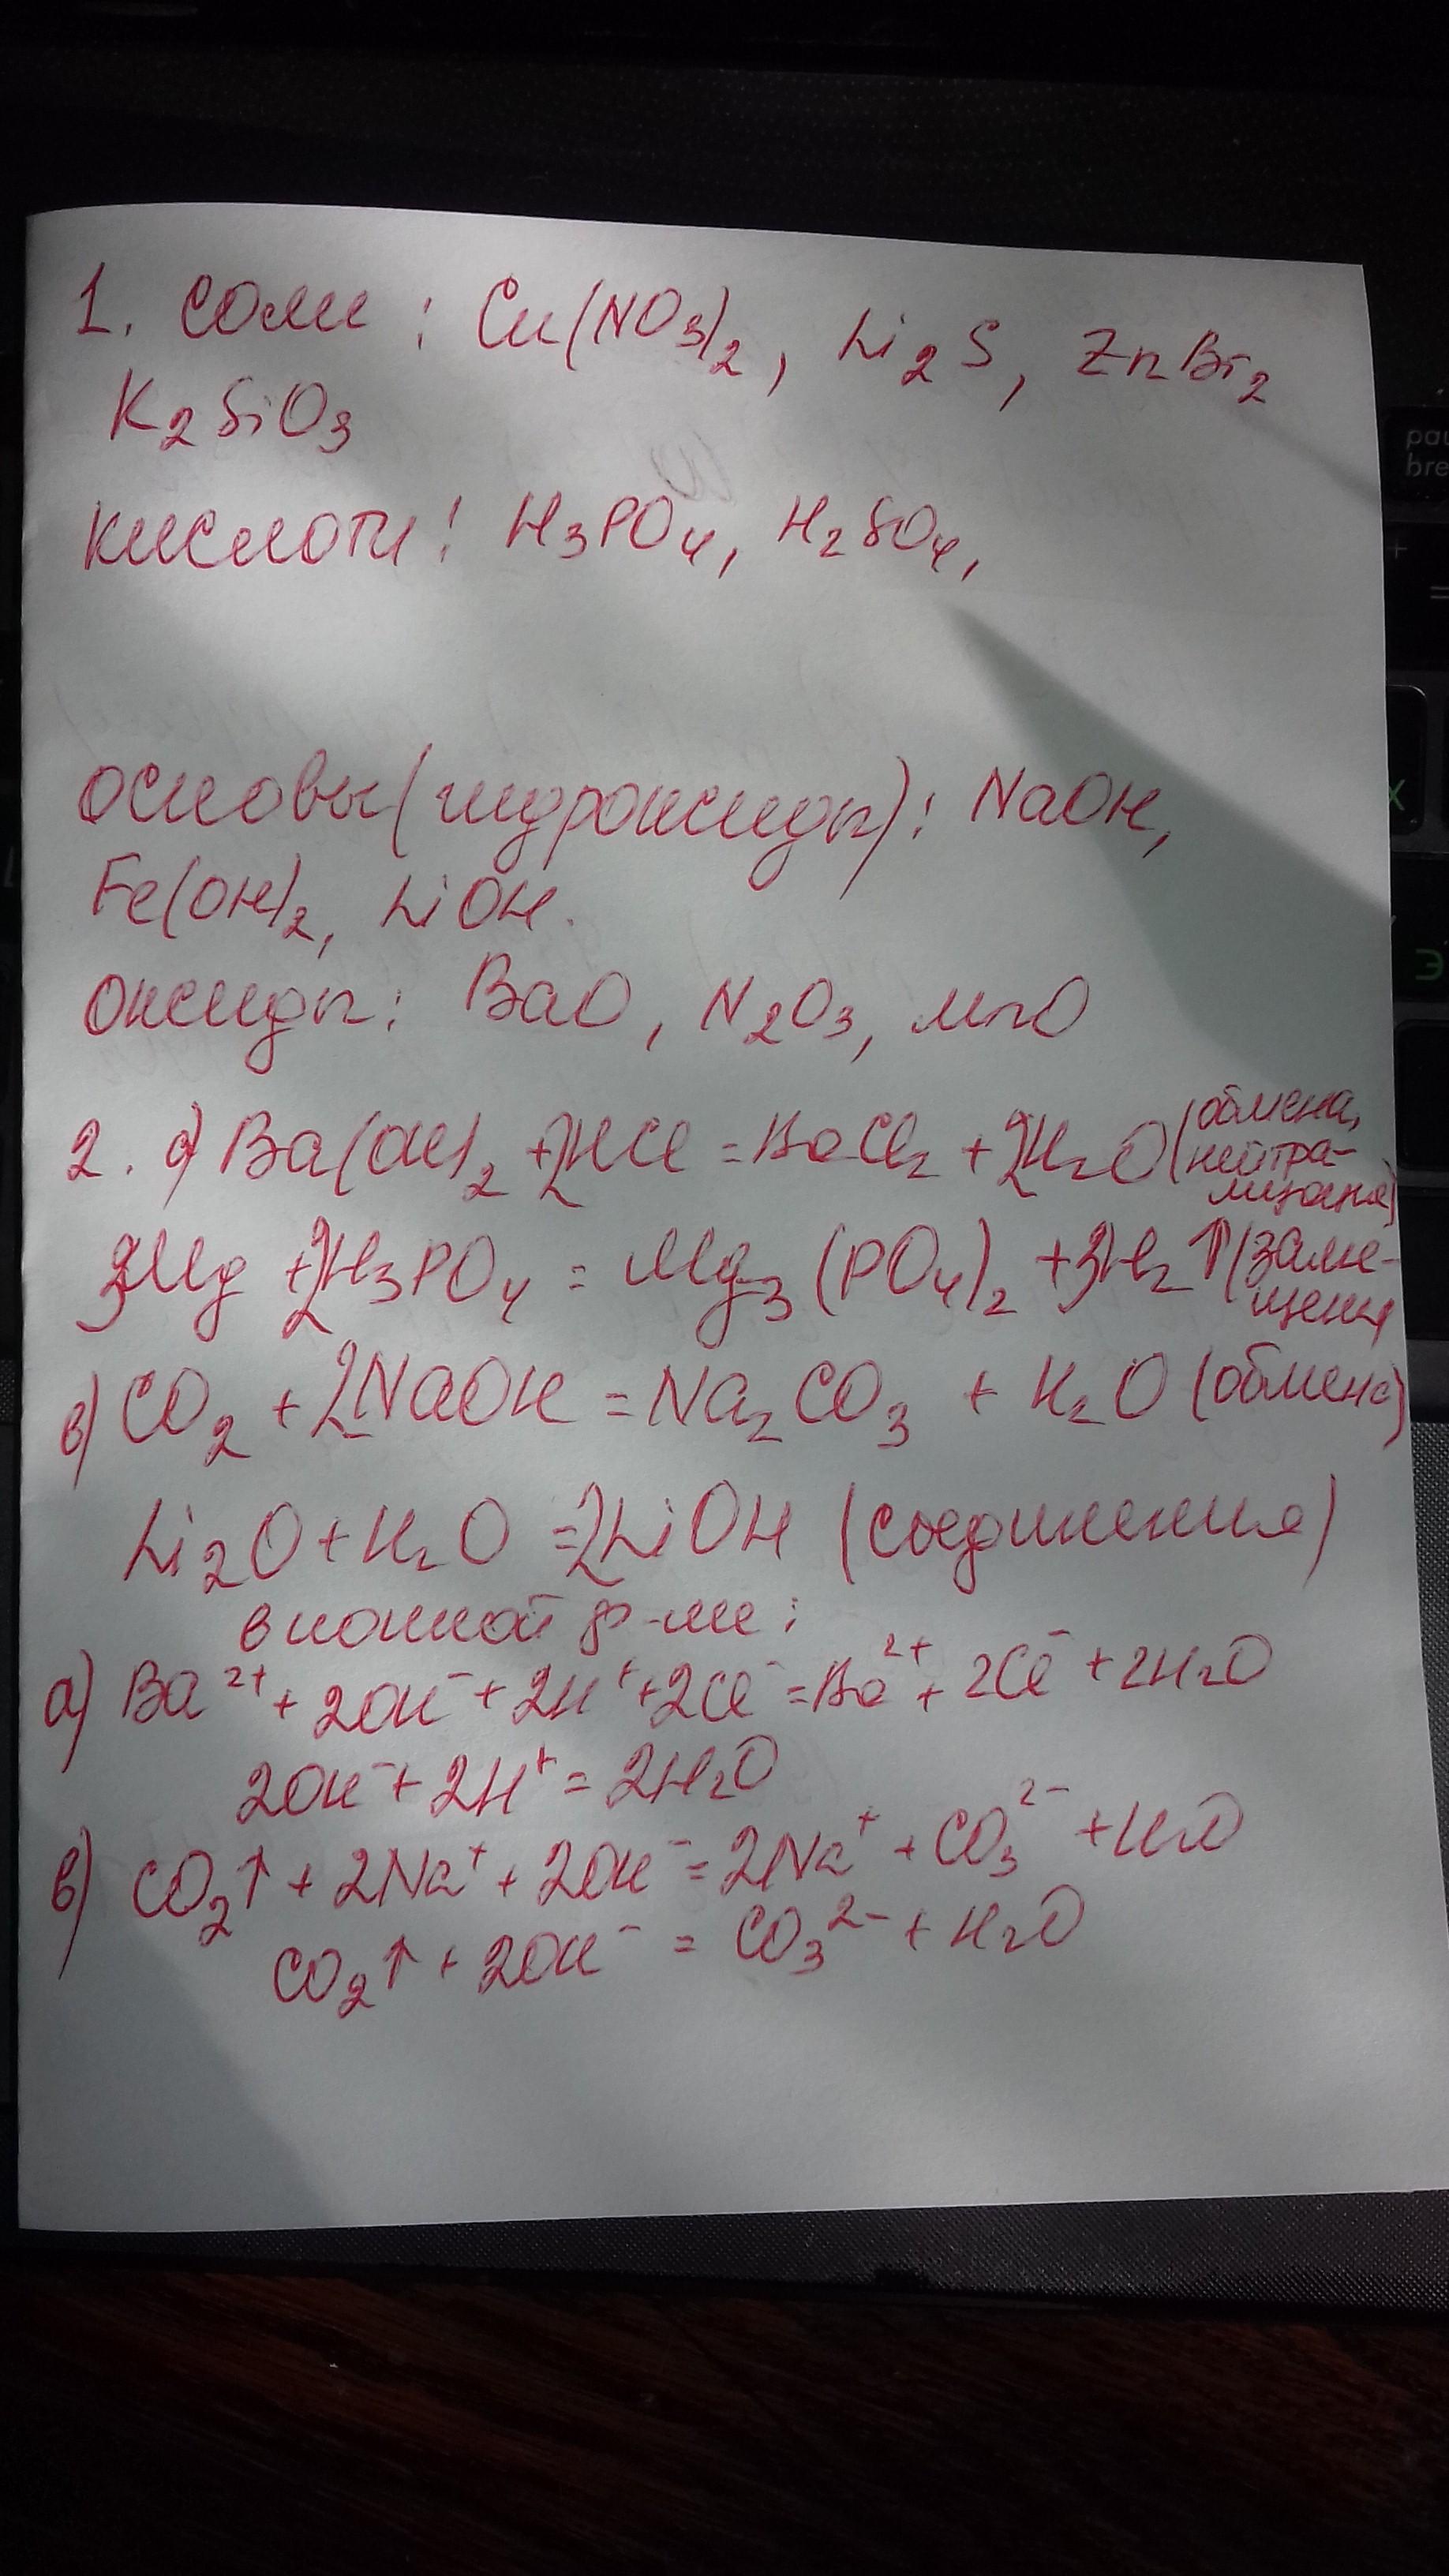 1. соли : Cu(NO₃)₂, Li₂S, ZnBr₂
K₂SiO₃
кислоты : H₃PO₄, H₂SO₄,
основы (гидроксиды) : NaOH,
Fe(OH)₂, LiOH.
Оксиды : BaO, N₂O₃, MnO
2. а) Ba(OH)₂ + 2HCl = BaCl₂ + 2H₂O (обмена,
нейтра-
лизация)
3Mg + 2H₃PO₄ = Mg₃(PO₄)₂ + 3H₂ ↑ (заме-
щения
в) CO₂ + 2NaOH = Na₂CO₃ + H₂O (обмена)
Li₂O + H₂O = 2LiOH (соединения)
в ионной ф-ме :
а) Ba²⁺ + 2OH⁻ + 2H⁺ + 2Cl⁻ = Ba²⁺ + 2Cl⁻ + 2H₂O
2OH⁻ + 2H⁺ = 2H₂O
в) CO₂↑ + 2Na⁺ + 2OH⁻ = 2Na⁺ + CO₃²⁻ + H₂O
CO₂↑ + 2OH⁻ = CO₃²⁻ + H₂O
pau
bre
+
=
Х
Э